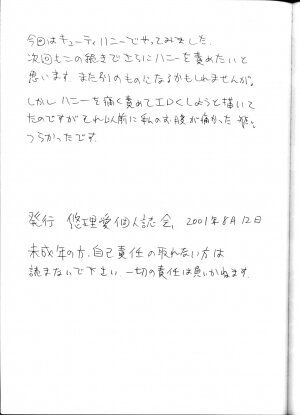 今回はキューティハニーでやってみました。
次回もこの続きでさらにハニーを責めたいと
思います。また別のものになるかもしれませんが。
しかしハニーを痛く責めてエロくしようと描いて
たのですがそれ以前に私のお腹が痛かった
つらかったです。
発行 悠理愛個人誌会 2001年8月12日
未成年の方、自己責任の取れない方は
読まないで下さい。一切の責任は負いかねます。